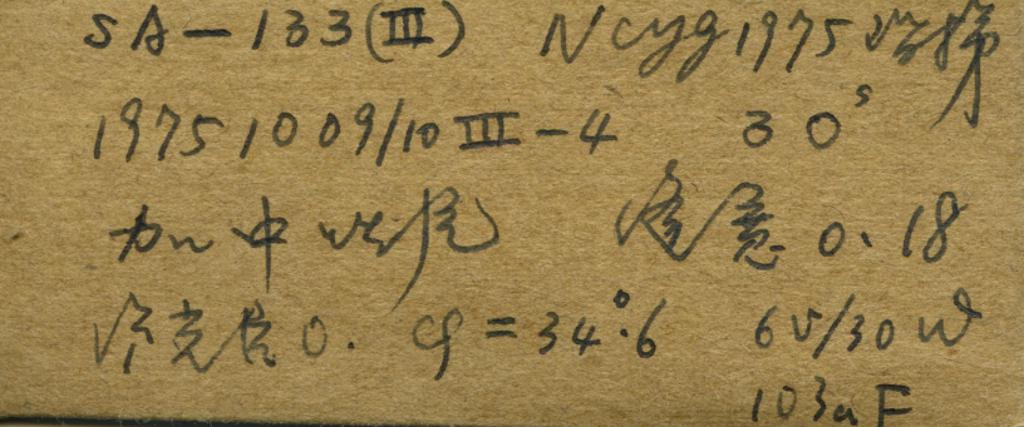 SA-133(III) NCyg1975 阶梯
1975 10 09/10 III-4 30ˢ
加中性片 缝宽 0.18
0. φ=34°.6 6V/30W
103aF